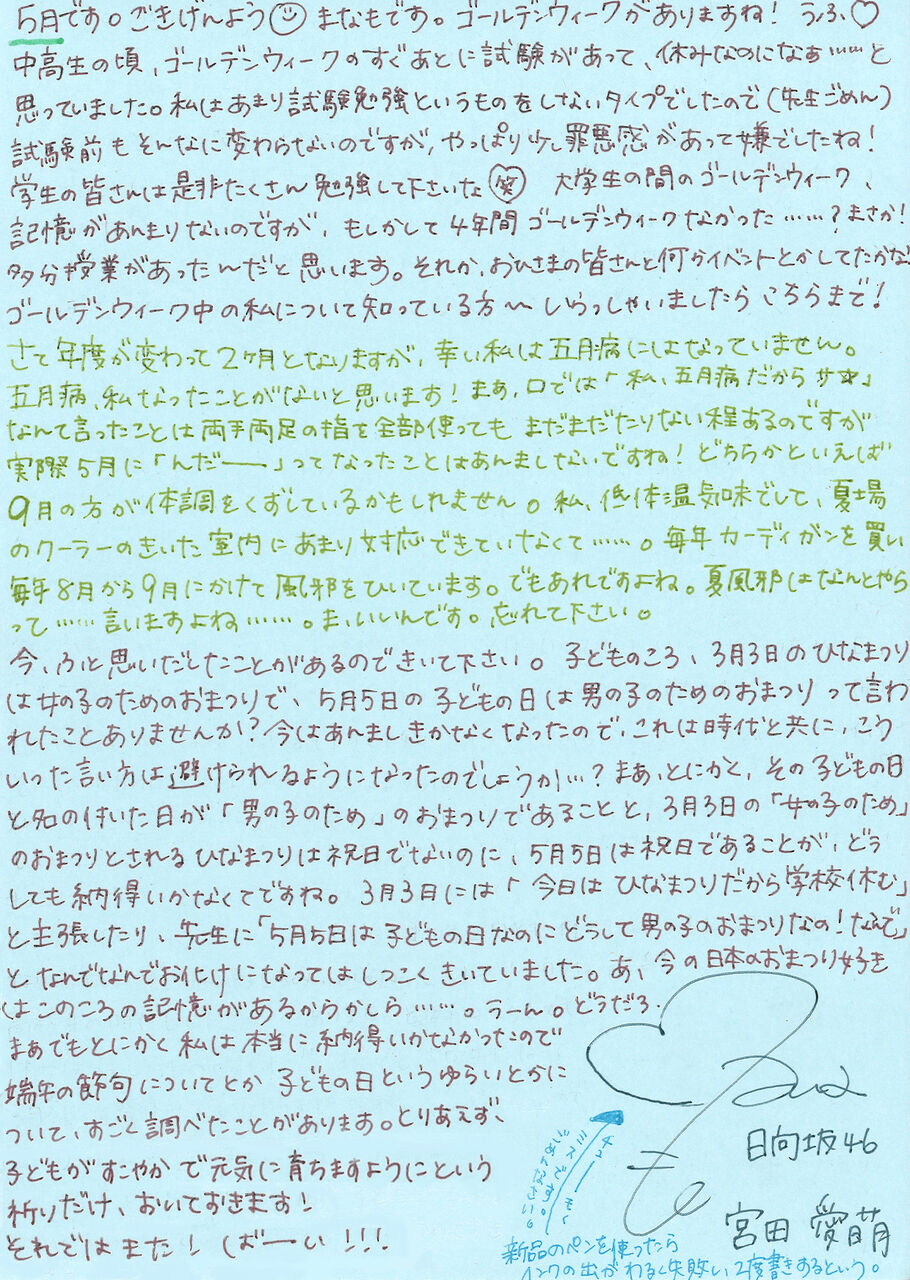 5月です。ごきげんよう☺ まなもです。ゴールデンウィークがありますね! うふ♡
中高生の頃、ゴールデンウィークのすぐあとに試験があって、休みなのになぁ……と
思っていました。私はあまり試験勉強というものをしないタイプでしたので(先生ごめん)
試験前もそんなに変わらないのですが、やっぱり少し罪悪感があって嫌でしたね!
学生の皆さんは是非たくさん勉強して下さいな(笑) 大学生の間のゴールデンウィーク、
記憶があんまりないのですが、もしかして4年間ゴールデンウィークなかった……?まさか!
多分授業があったんだと思います。それか、おひさまの皆さんと何かイベントとかしてたかな?
ゴールデンウィーク中の私について知っている方〜いらっしゃいましたらこちらまで!
さて年度が変わって2ヶ月となりますが、幸い私は五月病にはなっていません。
五月病、私なったことがないと思います!まあ、口では「私、五月病だからサ☆」
なんて言ったことは両手両足の指を全部使ってもまだまだたりない程あるのですが
実際5月に「んだーー」ってなったことはあんましないですね!どちらかといえば
9月の方が体調をくずしているかもしれません。私、低体温気味でして、夏場
のクーラーのきいた室内にあまり対応できていなくて……。毎年カーディガンを買い
毎年8月から9月にかけて風邪をひいています。でもあれですよね。夏風邪はなんとやら
って……言いますよね……。ま、いいんです。忘れて下さい。
今、ふと思いだしたことがあるのできいて下さい。子どものころ、3月3日のひなまつり
は女の子のためのおまつりで、5月5日の子どもの日は男の子のためのおまつりって言わ
れたことありませんか?今はあんましきかなくなったので、これは時代と共に、こう
いった言い方は避けられるようになったのでしょうか…?まあ、とにかく、その子どもの日
と名の付いた日が「男の子のため」のおまつりであることと、3月3日の「女の子のため」
のおまつりとされるひなまつりは祝日でないのに、5月5日は祝日であることが、どう
しても納得いかなくてですね。3月3日には「今日はひなまつりだから学校休む」
と主張したり、先生に「5月5日は子どもの日なのにどうして男の子のおまつりなの!なんで」
となんでなんでお化けになってはしつこくきいていました。あ、今の日本のおまつり好き
はこのころの記憶があるからかしら……。うーん。どうだろ.
まあでもとにかく私は本当に納得いかなかったので
端午の節句についてとか子どもの日というゆらいとかに
ついて、すごく調べたことがあります。とりあえず、
子どもがすこやかで元気に育ちますようにという
祈りだけ、おいておきます!
それではまた! ばーい!!!
日向坂46
宮田 愛萌
新品のペンを使ったら
インクの出がわるく失敗し、2度書きするという。